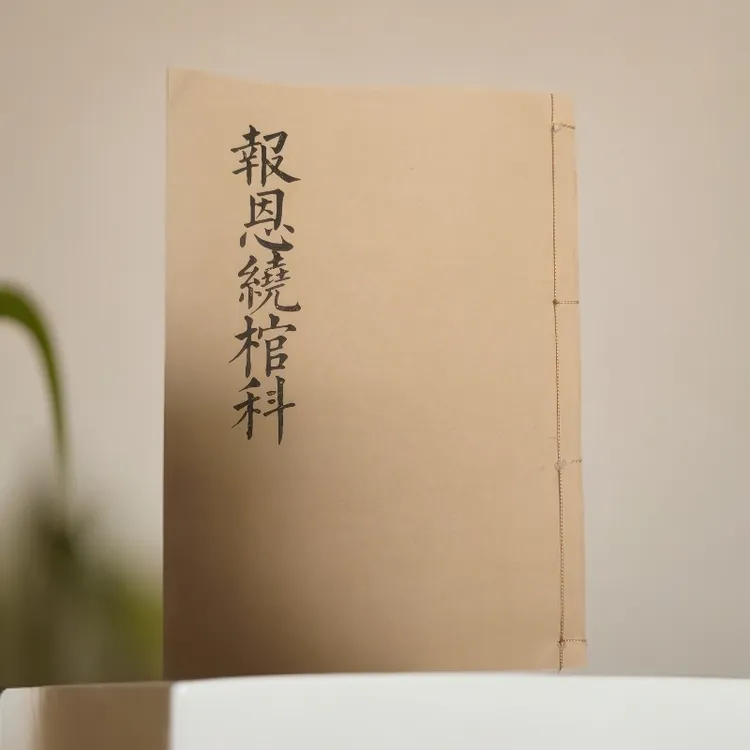 報恩繞棺科